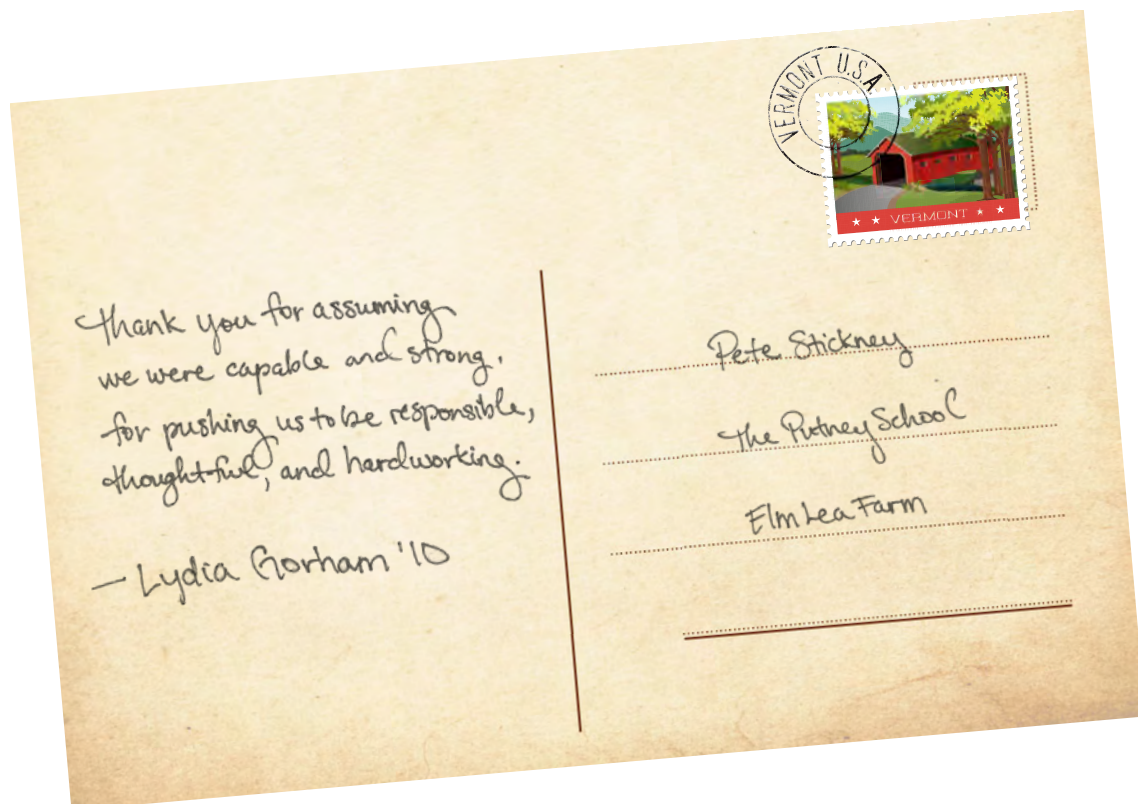 VERMONT U.S.A
VERMONT
Thank you for assuming
we were capable and strong,
for pushing us to be responsible,
thoughtful, and hardworking.
— Lydia Gorham '10
Pete Stickney
The Putney School
Elm Lea Farm